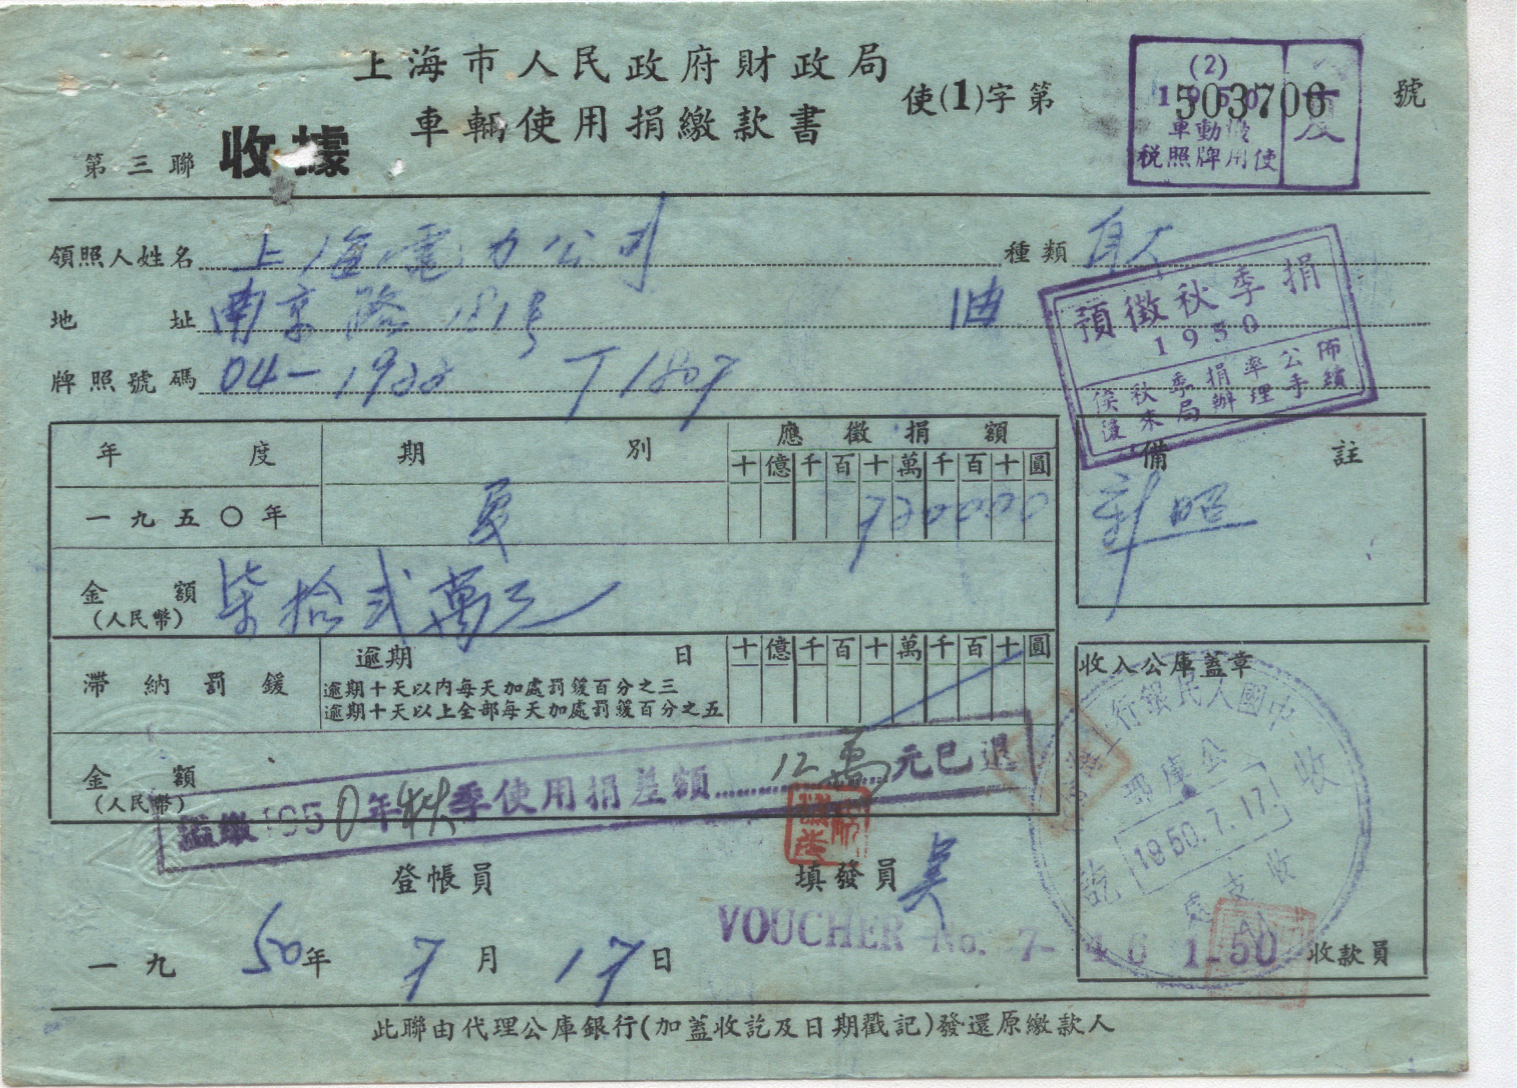 上海市人民政府財政局
車輛使用捐繳款書
使(1)字第 503706 號
第三聯 收據
(2)
1950
車動
税照牌用使
夏
領照人姓名 上海電力公司 種類 自人
地址 南京路181号
牌照號碼 04-1933 T1807
預徵秋季捐
1950
俟秋季捐率公佈
後來局辦理手續
年度 期別 應徵捐額
十億千百十萬千百十圓
一九五〇年 夏 720000
備註
新照
金額 柒拾弍萬元
(人民幣)
滯納罰鍰 逾期 日 十億千百十萬千百十圓
逾期十天以内每天加處罰鍰百分之三
逾期十天以上全部每天加處罰鍰百分之五
金額
(人民幣)
溢繳1950年秋季使用捐差額......12萬元已退
收入公庫蓋章
中國人民銀行上海
公庫部
收 1950.7.17 訖
收支處
登帳員 填發員 吳
VOUCHER No. 7-461-50
收款員
一九50年7月17日
此聯由代理公庫銀行(加蓋收訖及日期戳記)發還原繳款人